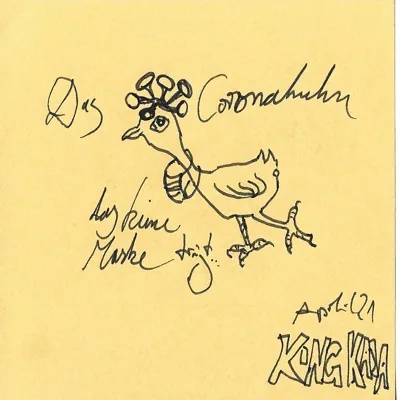 Das Coronahuhn
das keine
Maske trägt..
April '21
KONG KADA